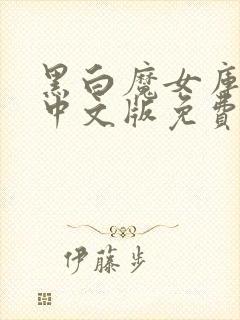 黑白魔女庫
中文版免費
伊藤步